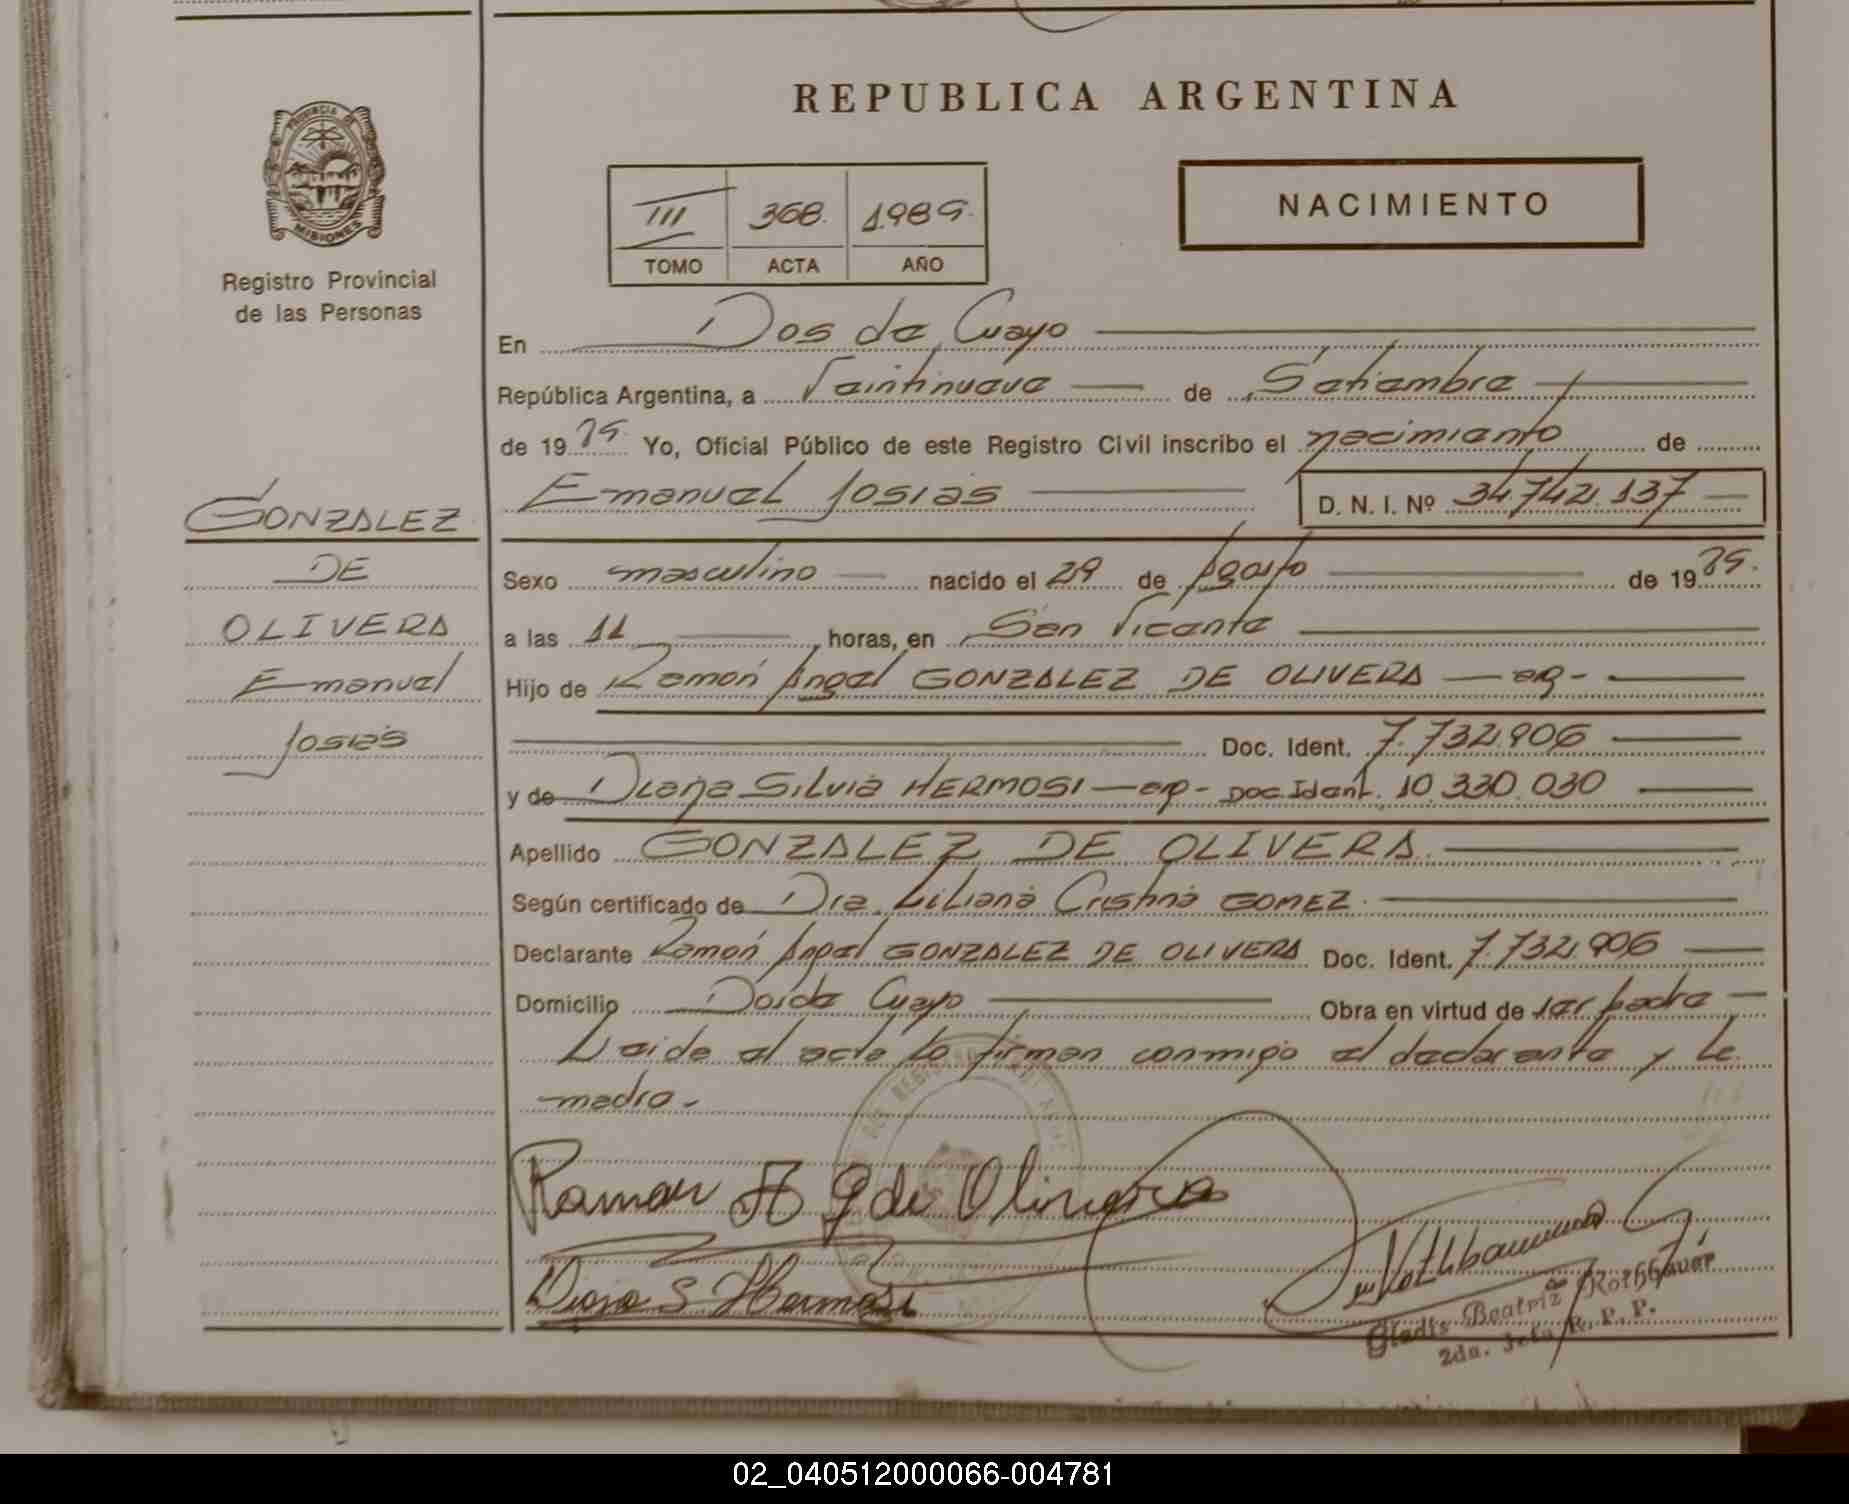 REPUBLICA ARGENTINA
PROVINCIA DE
MISIONES
Registro Provincial
de las Personas
III 368. 1989.
TOMO ACTA AÑO
NACIMIENTO
En Dos de Cuayo
República Argentina, a Veintinueve de Setiembre
de 1989. Yo, Oficial Público de este Registro Civil inscribo el nacimiento de
Emanuel Josías D. N. I. Nº 34.742.137
GONZALEZ
DE
OLIVERA
Emanuel
Josías
Sexo masculino nacido el 29 de Agosto de 1989.
a las 11 horas, en San Vicente
Hijo de Ramón Angel GONZALEZ DE OLIVERA -ar-
Doc. Ident. 7.732.906
y de Diana Silvia HERMOSI -ar- Doc. Ident. 10.330.030
Apellido GONZALEZ DE OLIVERA.
Según certificado de Dra. Liliana Cristina GOMEZ.
Declarante Ramón Angel GONZALEZ DE OLIVERA Doc. Ident. 7.732.906
Domicilio Dos de Cuayo Obra en virtud de ser padre
Leida el acta lo firman conmigo el declarante y la
madre.
Ramon A G de Olivera
Diana S Hermosi
Gladis Beatriz Rothbauer
2da. Jefa R. P. P.
02_040512000066-004781